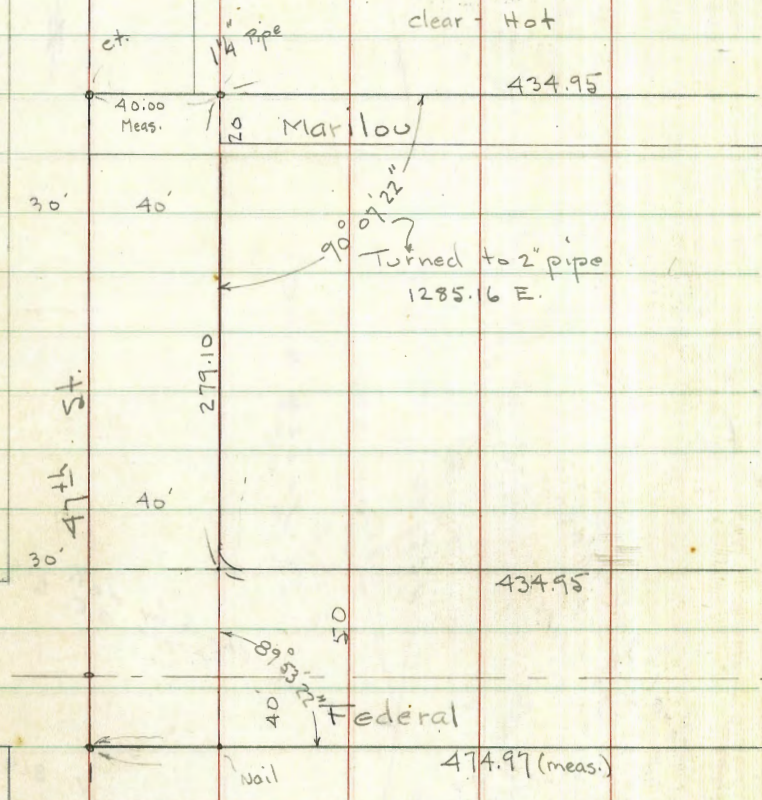 clear - Hot
ct.
1¼" Pipe
434.95
40.00
Meas.
20
Marilou
30'
40'
90° 07' 22"
Turned to 2" pipe
1285.16 E.
279.10
47th St.
40'
30'
434.95
50
89° 53' 22"
40'
Federal
474.97 (meas.)
Nail